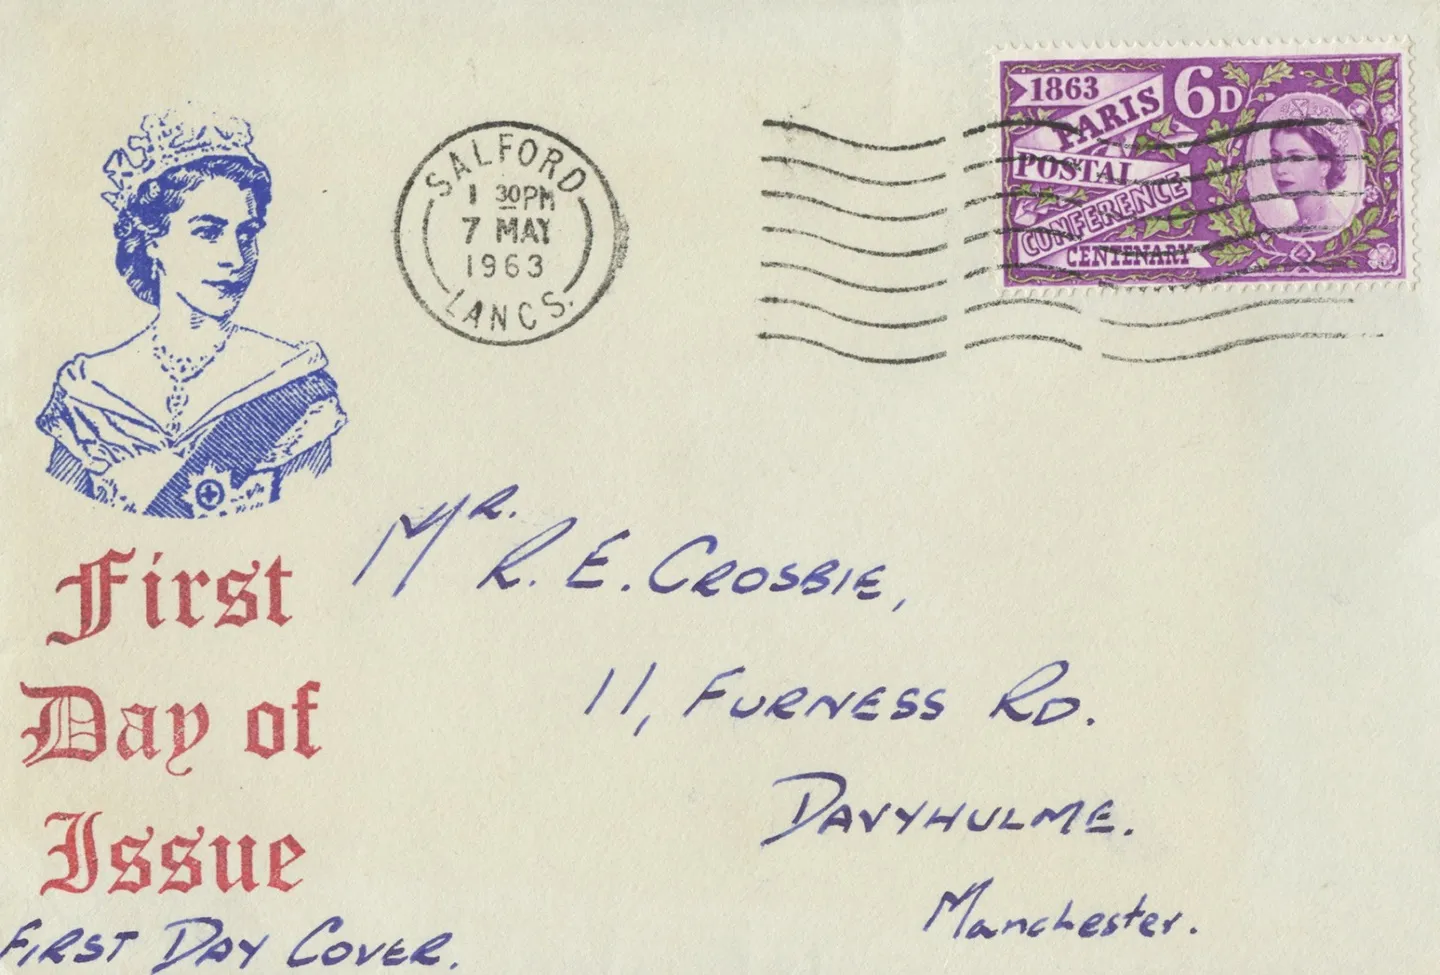 SALFORD
1 30PM
7 MAY
1963
LANCS.
1863
PARIS
6D
POSTAL
CONFERENCE
CENTENARY
Mr. R. E. CROSBIE,
11, FURNESS RD.
DAVYHULME.
Manchester.
First
Day of
Issue
FIRST DAY COVER.